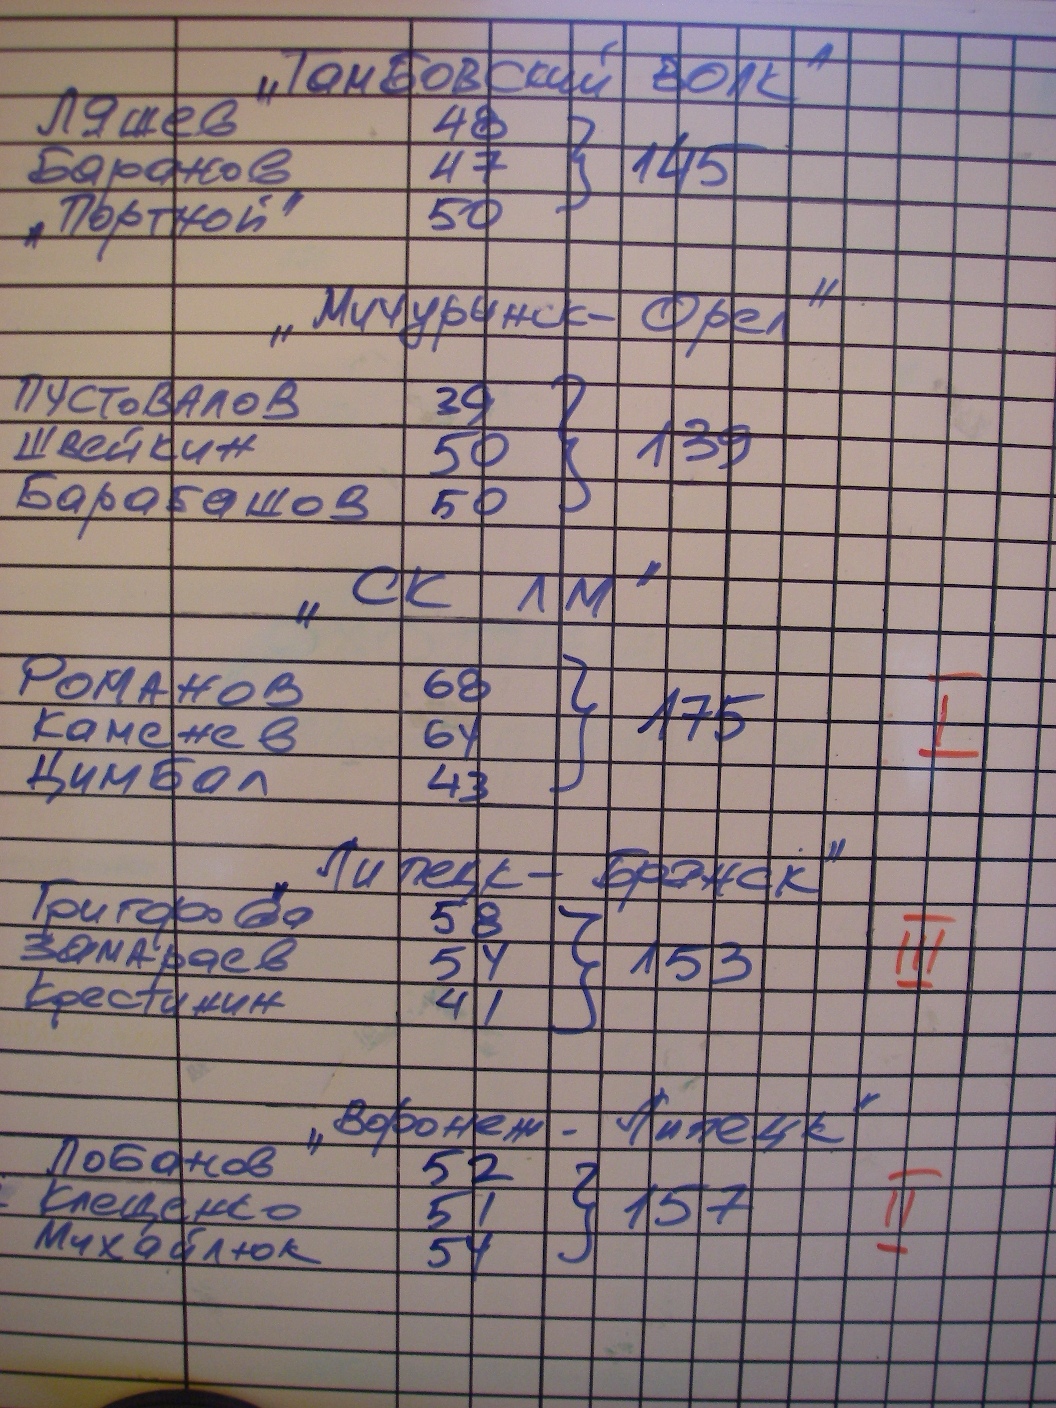 „Тамбовский волк"
Ляшев 48
Баранов 47 145
„Портной" 50
„Мичуринск-Орел"
Пустовалов 39
Швейкин 50 139
Барабашов 50
„СК ЛМ"
Романов 68
Каменев 64 175 I
Цимбал 43
„Липецк-Брянск"
Григорова 58
Замараев 54 153 III
Крестинин 41
„Воронеж-Липецк"
Лобанов 52
Клещенко 51 157 II
Михайлюк 54